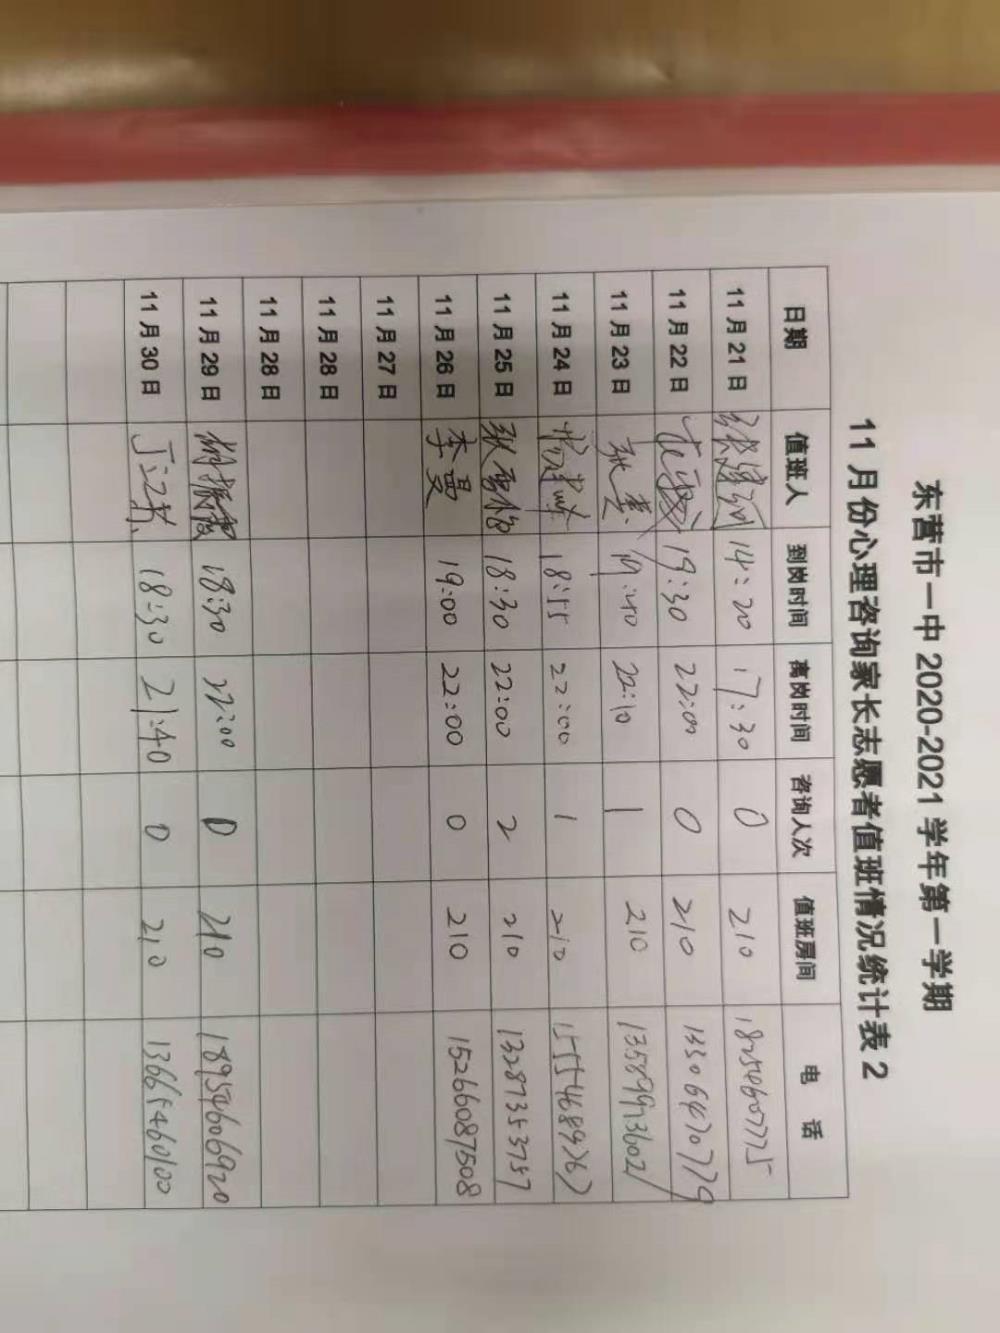 东营市一中 2020-2021 学年第一学期
11 月份心理咨询家长志愿者值班情况统计表 2
日期 值班人 到岗时间 离岗时间 咨询人次 值班房间 电 话
11 月 21 日 14:20 17:30 0 210 182546607775
11 月 22 日 19:30 22:00 0 210
11 月 23 日 耿慧 19:40 22:10 1 210
11 月 24 日 18:55 22:00 1 210
11 月 25 日 18:30 22:00 2 210 13287353757
11 月 26 日 李曼 19:00 22:00 0 210 15266087508
11 月 27 日
11 月 28 日
11 月 28 日
11 月 29 日 18:30 22:00 0 210 18954606920
11 月 30 日 18:30 21:40 0 210 13665460100